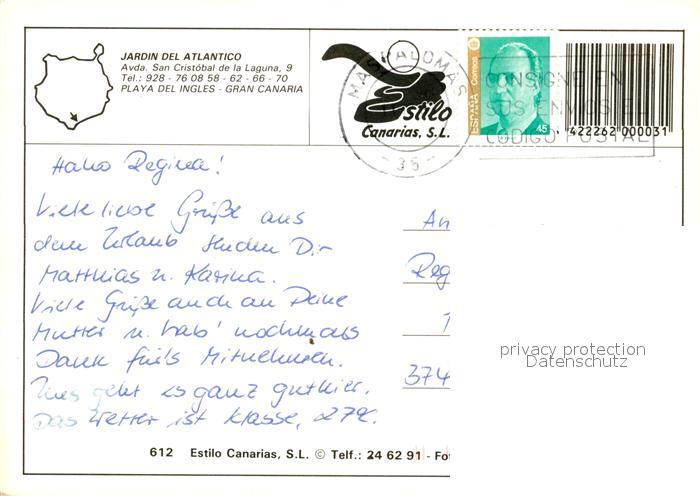 JARDIN DEL ATLANTICO
Avda. San Cristóbal de la Laguna, 9
Tel.: 928 - 76 08 58 - 62 - 66 - 70
PLAYA DEL INGLES - GRAN CANARIA
Estilo
Canarias, S.L.
MASPALOMAS
- 35 -
ESPAÑA Correos
45
CONSIGNE EN
SUS ENVIOS EL
CODIGO POSTAL
422262 000031
Hallo Regina!
Viele liebe Grüße aus
dem Urlaub senden Dir
Matthias u. Karina.
Viele Grüße auch an Deine
Mutter u. hab' nochmals
Dank für's Mitnehmen.
Uns geht es ganz gut hier.
Das Wetter ist klasse, 27°C.
An
Reg
374
privacy protection
Datenschutz
612 Estilo Canarias, S.L. © Telf.: 24 62 91 - Fo